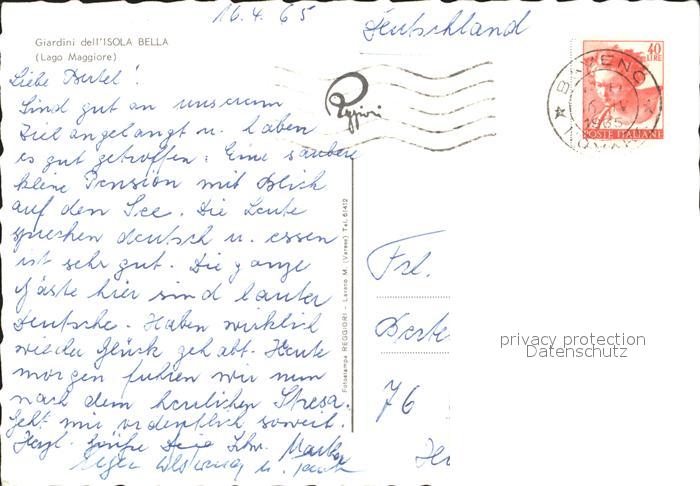 16.4.65
Deutschland
Giardini dell'ISOLA BELLA
(Lago Maggiore)
40
LIRE
BAVENO
1965
POSTE ITALIANE
Liebe Bertel!
Sind gut an unserem
Ziel angelangt u. haben
es gut getroffen: Eine saubere
kleine Pension mit Blick
auf den See. Die Leute
sprechen deutsch u. essen
ist sehr gut. Die ganze
Gäste hier sind lauter
Deutsche. Haben wirklich
wieder Glück gehabt. Heute
morgen fuhren wir nun
nach dem herrlichen Stresa.
Geht mir ordentlich soweit.
Herzl. Grüße Deine Schw.
Fotostampa REGGIORI - Laveno M. (Varese) Tel. 61412
Frl.
76
privacy protection
Datenschutz